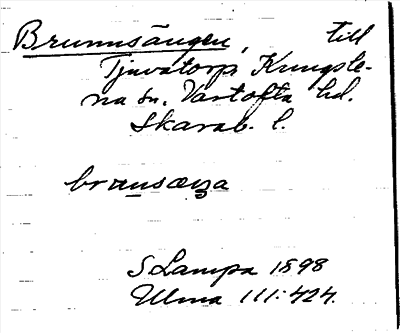 Brunnsängen, till
Tjuvatorp, Kungsle-
na sn. Vartofta hd.
Skarab. l.
brunsæŋa
S Lampa 1898
Ulma 111:424.